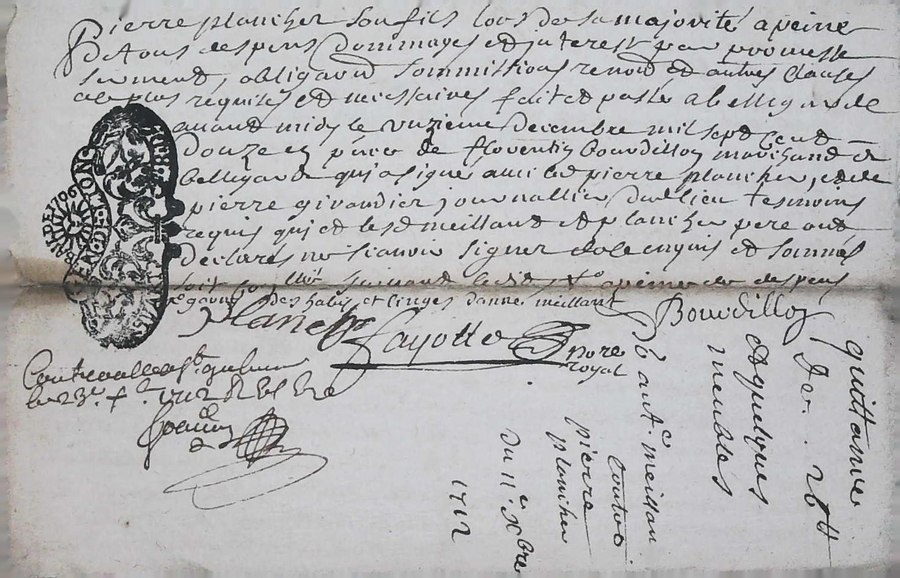 pierre plancher son fils lors de sa majorité a peine
de tous despens dommages et interest par promesse
serment, obligaon sommissions renon et autres clauses
requises et necessaires fait et passé a bellegarde
auant midy le unzieme decembre mil sept cent
douze en pñce de floventin Bourdillon marchand
bellegarde qui a signé auec led pierre plancher, et de
pierre givaudier journallier dud lieu tesmoins
requis qui et lesd meillant et plancher pere ont
declarés ne scauoir signer de ce enquis et sommés
soit
des habis et linges danne meillant
Bourdillon
plancher
fayolle
nore
royal
Contreollé
le 23e
quittance
De . 26 tt
et quelques
meubles
D'ant.e meillan
contre
pierre
plancher
du 11e xbre
1712